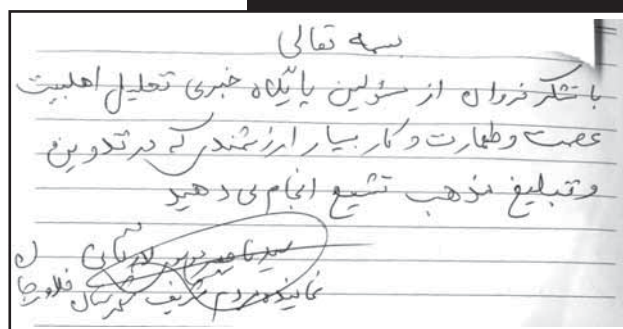 بسمه تعالی
با تشکر فروان از مسئولین پایگاه خبری تحلیل اهلبیت
عصمت و طهارت و کار بسیار ارزشمندی که در تدوین
و تبلیغ مذهب تشیع انجام می دهید
سید ناصر موسوی لارگانی
نماینده مردم شریف شهرستان فلاورجان